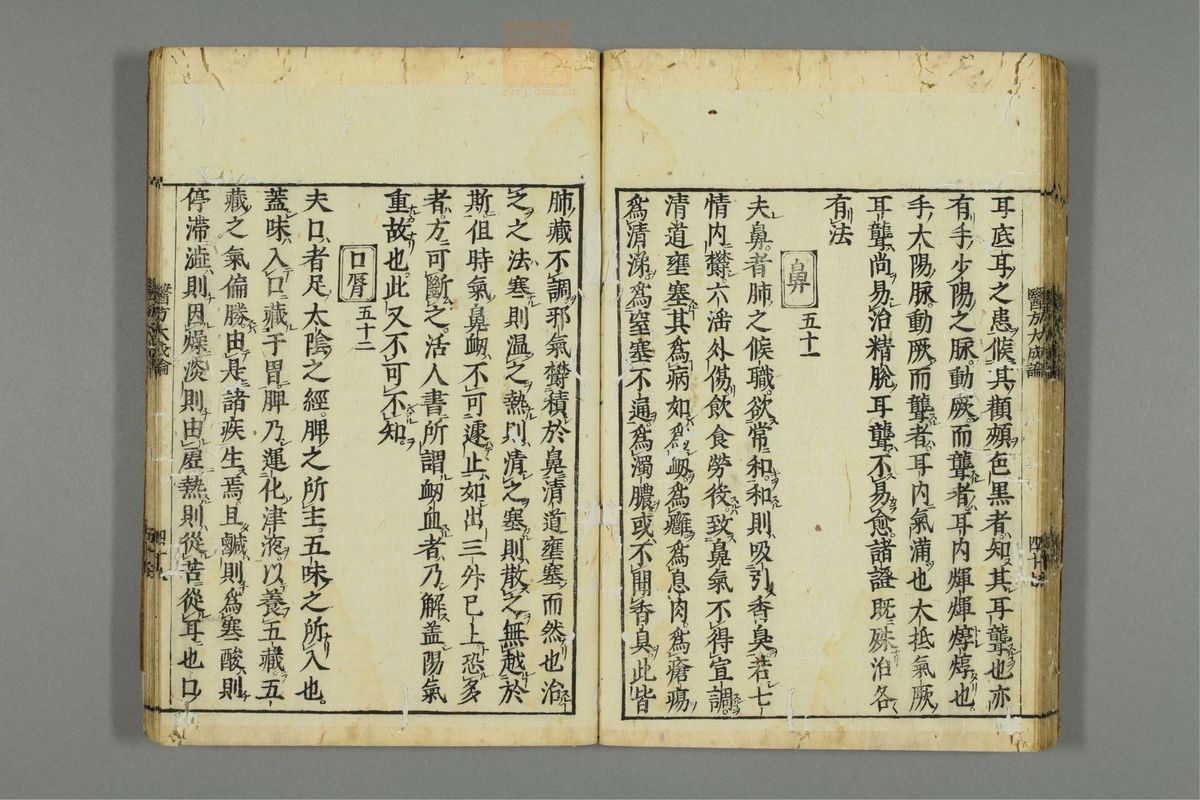 耳底耳之患候其顴頰色黑者知其耳聾也亦
有手少陽之脉動厥而聾者耳内煇煇焞焞也
手太陽脉動厥而聾者耳内氣滿也大抵氣厥
耳聾尚易治精脫耳聾不易愈諸證既殊治各
有法
鼻 五十一
夫鼻者肺之候職欲常和和則吸引香臭若七
情内欝六淫外傷飲食勞役致鼻氣不得宣調
清道壅塞其爲病如爲衂爲癰爲息肉爲瘡瘍
爲清涕爲窒塞不通爲濁膿或不聞香臭此皆
肺藏不調邪氣欝積於鼻清道壅塞而然也治
之之法寒則温之熱則清之塞則散之無越於
斯但時氣鼻衂不可遽止如出三升已上恐多
者方可斷之活人書所謂衂血者乃解盖陽氣
重故也此又不可不知
口脣 五十二
夫口者足太陰之經脾之所主五味之所入也
蓋味入口藏于胃脾乃運化津液以養五藏五
藏之氣偏勝由是諸疾生焉且鹹則爲寒酸則
停滯澁則因燥淡則由虛熱則從苦從耳也口
醫方大成論
四十